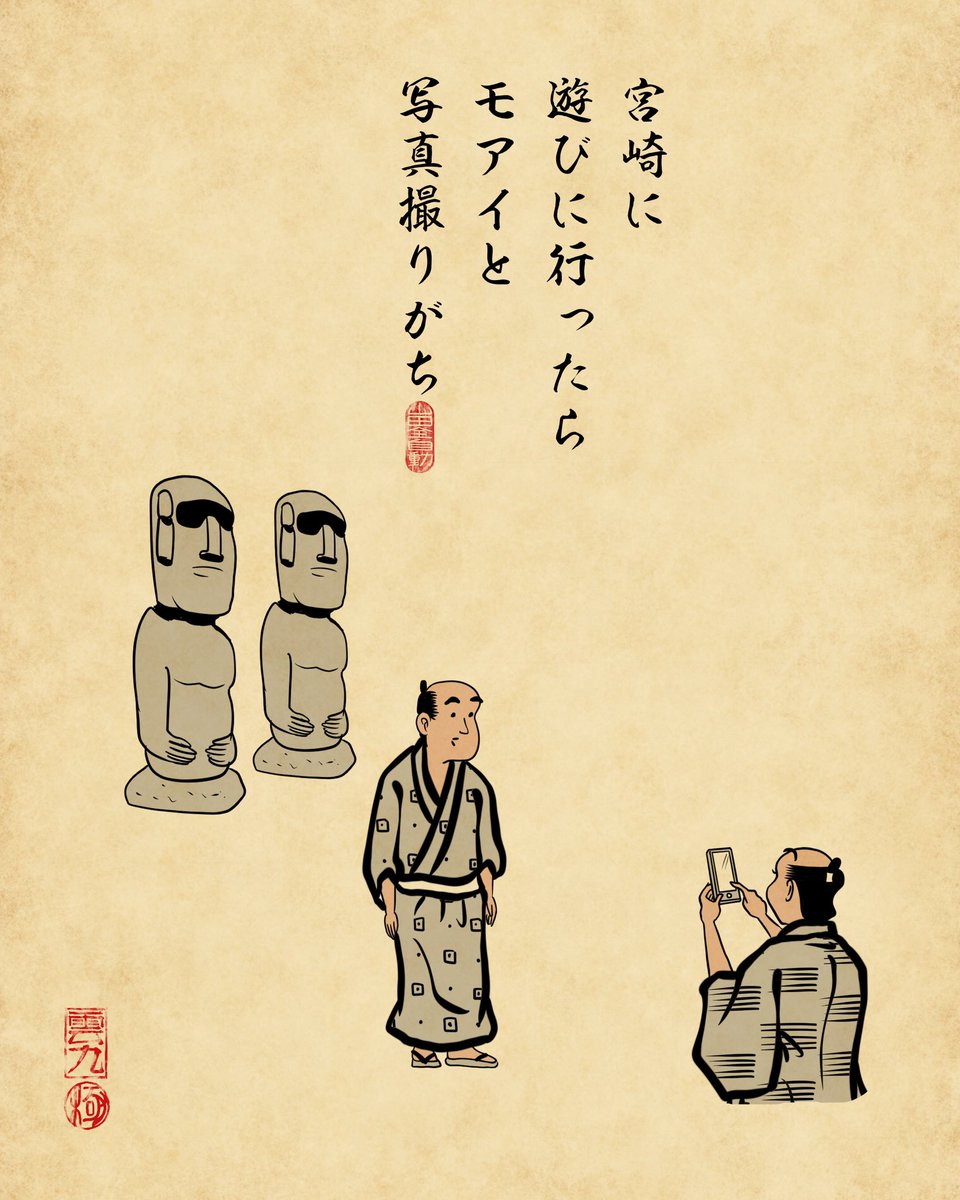 宮崎に
遊びに行ったら
モアイと
写真撮りがち